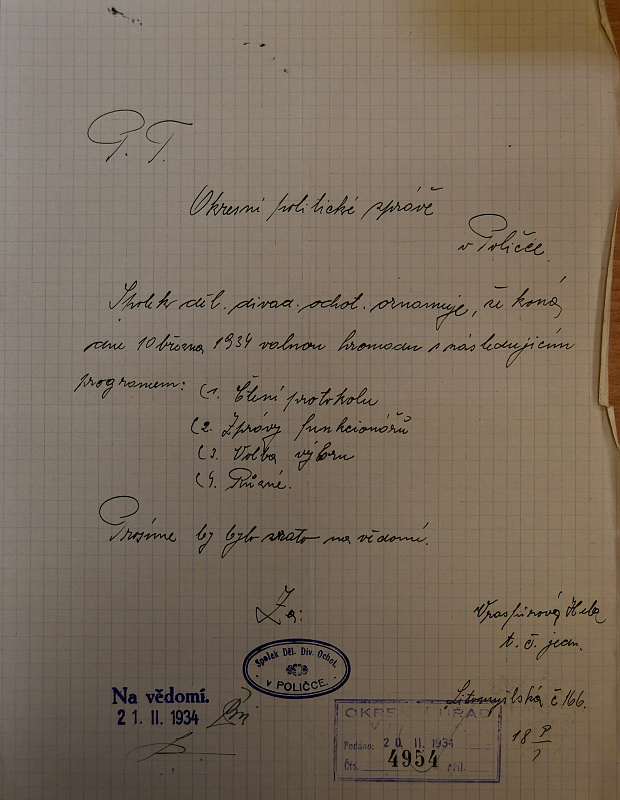 P. T.
Okresní politické správě
v Poličce.
Spolek děl. divad. ochot. oznamuje, že koná
dne 10 března 1934 valnou hromadu s následujícím
programem:
(1. Čtení protokolu
(2. Zprávy funkcionářů
(3. Volba výboru
(4. Různé.
Prosíme by bylo vzato na vědomí.
Za:
Hela
t. č. jedn.
Spolek Děl. Div. Ochot.
V POLIČCE.
Litomyšlská č 166.
Na vědomí.
21. II. 1934
OKRESNÍ ÚŘAD
Podáno: 20 II. 1934
Čís. 4954 příl.
18